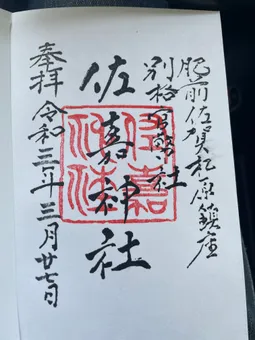 肥前佐賀松原鎮座
別格官幣社
佐嘉神社
奉拝 令和三年三月廿七日